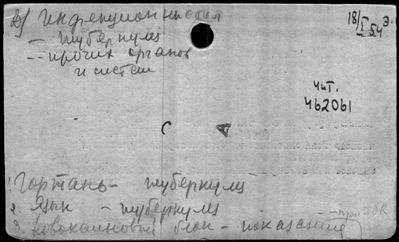 18/I 54 Э.
А) Инфекционн
— туберкулез
— прочих органов
и систем
чит.
462061
1. Гортань — туберкулез
2. Язык — туберкулез
3. Новокаиновый блок — показание
— при tbk